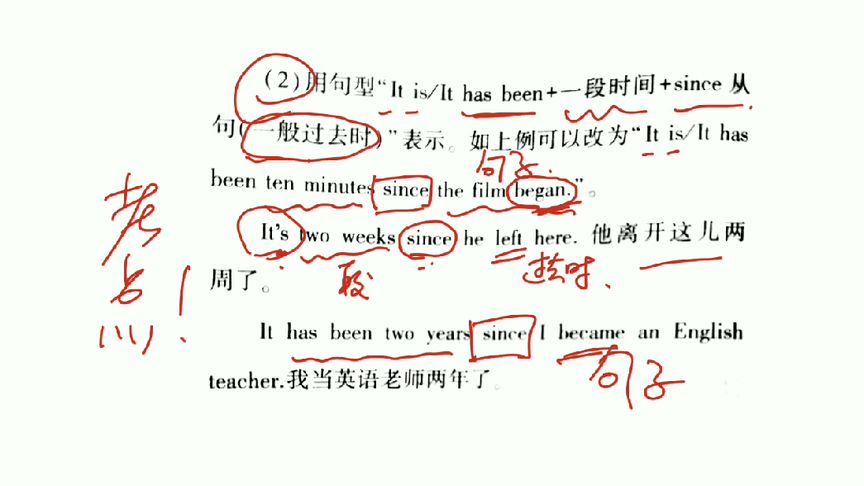 (2)用句型“It is/It has been+一段时间+since 从
句(一般过去时)”表示。如上例可以改为“It is/It has
句子.
been ten minutes since the film began.”。
考点!
It's two weeks since he left here. 他离开这儿两
周了。
段
过去时.
It has been two years since I became an English
teacher.我当英语老师两年了。
句子